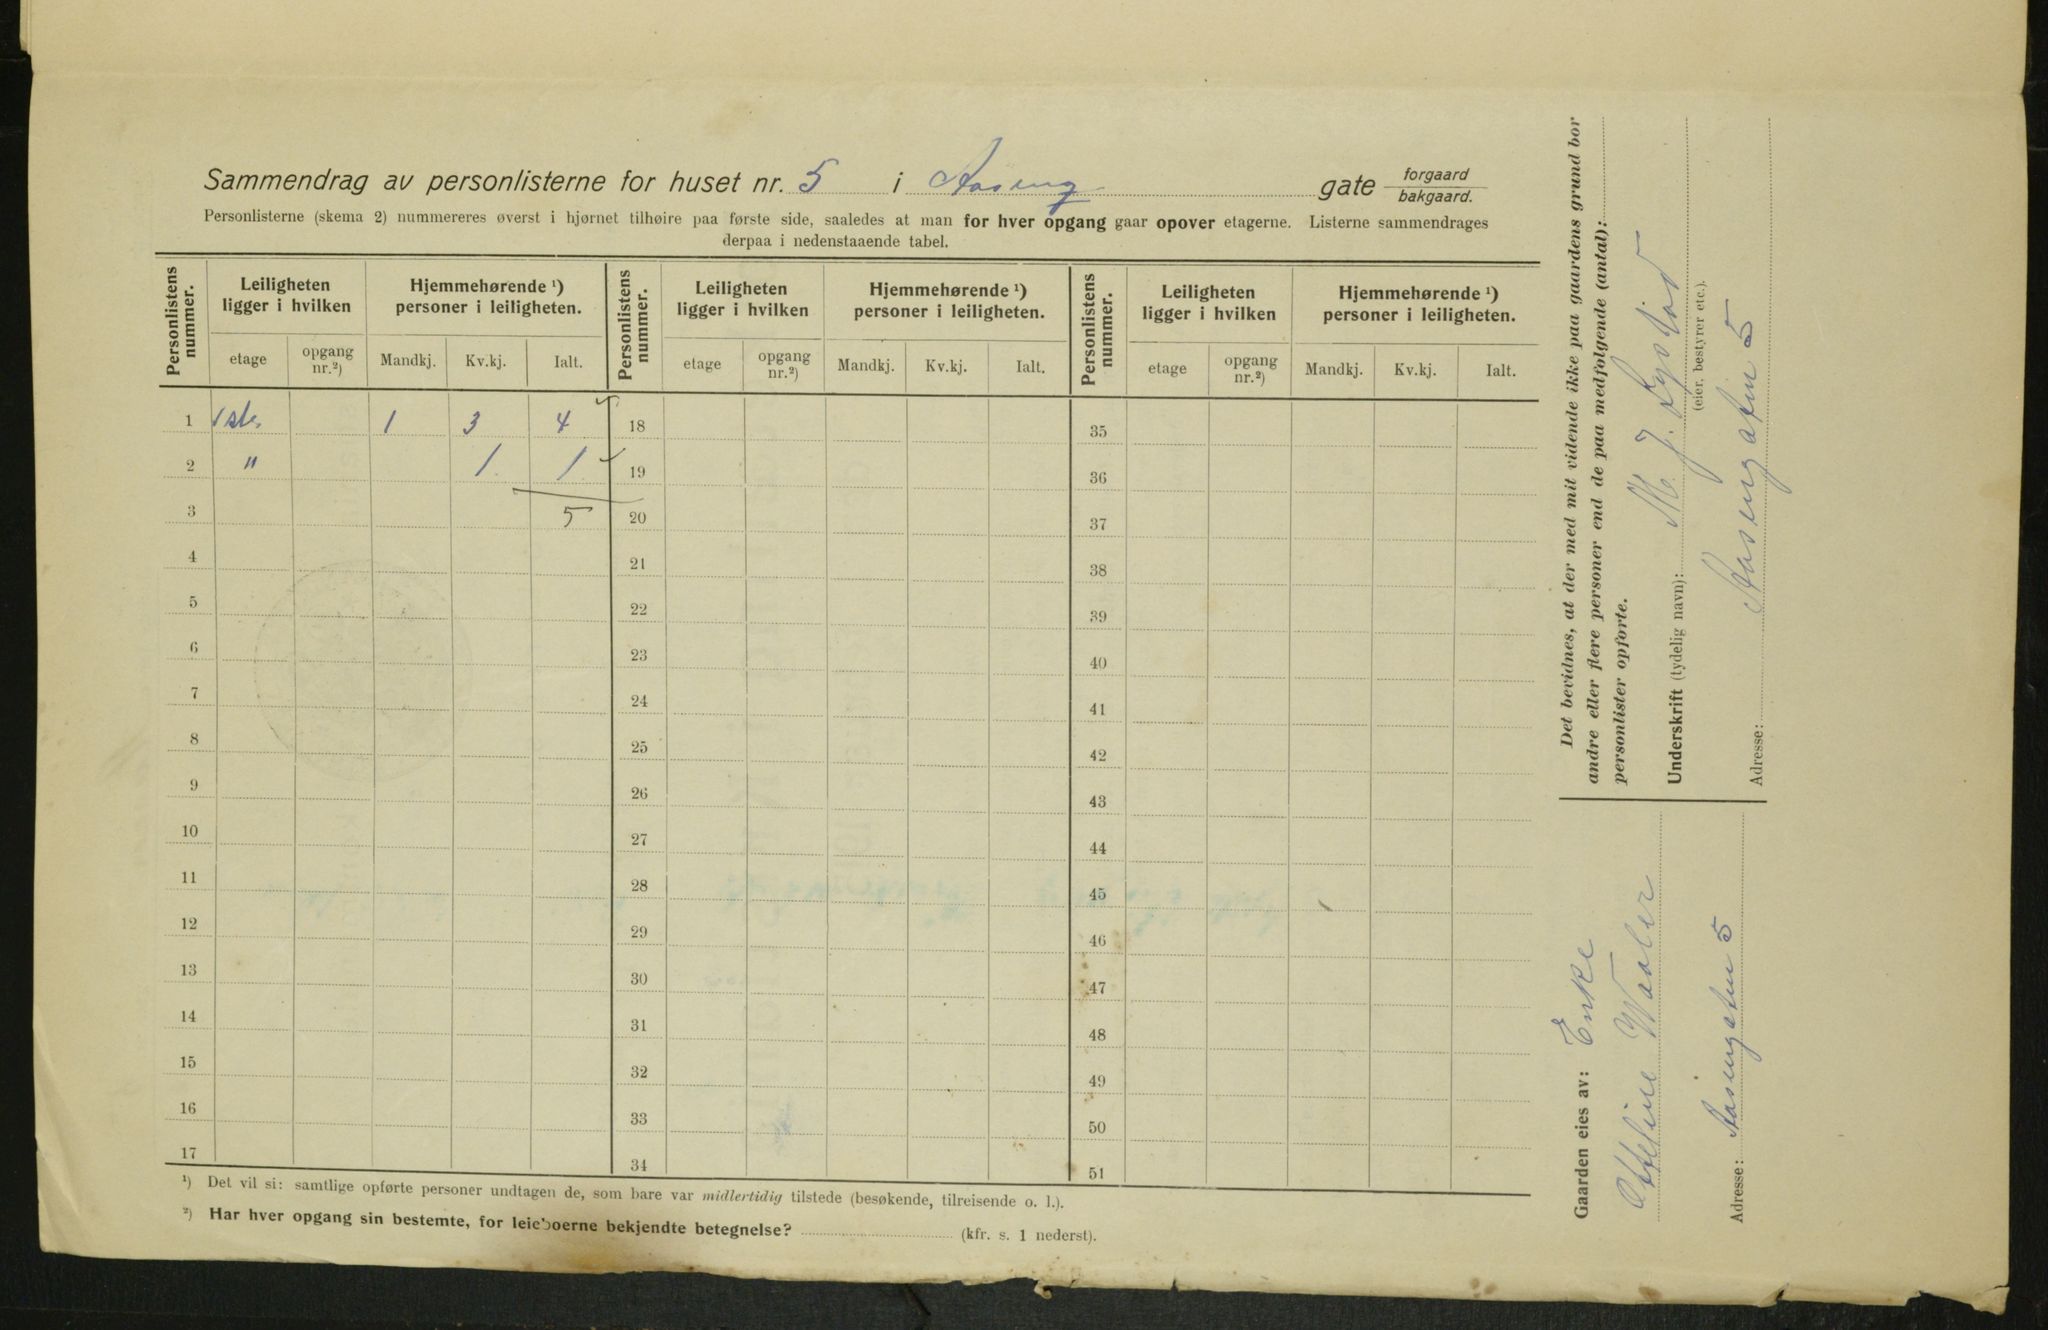 Sammendrag av personlisterne for huset nr. 5 i Aaseng gate forgaard bakgaard.
Personlisterne (skema 2) nummereres øverst i hjørnet tilhøire paa første side, saaledes at man for hver opgang gaar opover etagerne. Listerne sammendrages
derpaa i nedenstaaende tabel.
Personlistens nummer. Leiligheten ligger i hvilken Hjemmehørende ¹) personer i leiligheten. Personlistens nummer. Leiligheten ligger i hvilken Hjemmehørende ¹) personer i leiligheten. Personlistens nummer. Leiligheten ligger i hvilken Hjemmehørende ¹) personer i leiligheten.
etage opgang nr.²) Mandkj. Kv.kj. Ialt. etage opgang nr.²) Mandkj. Kv.kj. Ialt. etage opgang nr.²) Mandkj. Kv.kj. Ialt.
1 1ste 1 3 4 18 35
2 " 1 1 19 36
3 5 20 37
4 21 38
5 22 39
6 23 40
7 24 41
8 25 42
9 26 43
10 27 44
11 28 45
12 29 46
13 30 47
14 31 48
15 32 49
16 33 50
17 34 51
¹) Det vil si: samtlige opførte personer undtagen de, som bare var midlertidig tilstede (besøkende, tilreisende o. l.).
²) Har hver opgang sin bestemte, for leieboerne bekjendte betegnelse? (kfr. s. 1 nederst).
Det bevidnes, at der med mit vidende ikke paa gaardens grund bor
andre eller flere personer end de paa medfølgende (antal):
personlister opførte.
Underskrift (tydelig navn): M. J.
(eier, bestyrer etc.).
Adresse: Aasengaten 5
Gaarden eies av: Enke
Waaler
Adresse: Aasengaten 5